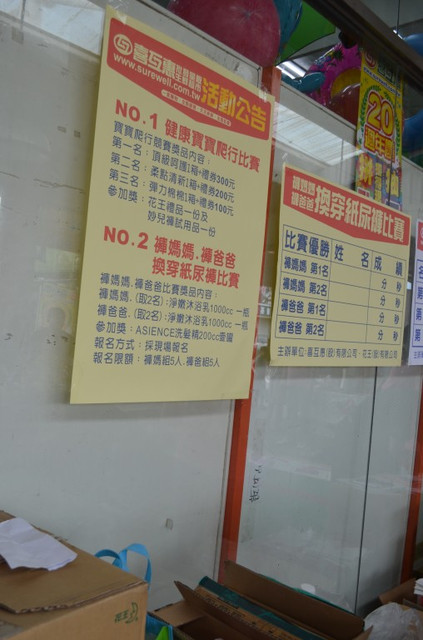 喜互惠
www.surewell.com.tw
活動公告
NO.1 健康寶寶爬行比賽
寶寶爬行競賽獎品內容:
第一名:頂級呵護1箱+禮券300元
第二名:柔點清新1箱+禮券200元
第三名:彈力棉棉1箱+禮券100元
參加獎:花王禮品一份及
妙兒褲試用品一份
NO.2 褲媽媽.褲爸爸
換穿紙尿褲比賽
褲媽媽.褲爸爸比賽獎品內容:
褲媽媽.(取2名):淨嫩沐浴乳1000cc 一瓶
褲爸爸.(取2名):淨嫩沐浴乳1000cc 一瓶
參加獎:ASIENCE洗髮精200cc壹罐
報名方式:採現場報名
報名限額:褲媽組5人.褲爸組5人
褲媽媽
褲爸爸
換穿紙尿褲比賽
比賽優勝 姓 名 成 績
褲媽媽 第1名 分 秒
褲媽媽 第2名 分 秒
褲爸爸 第1名 分 秒
褲爸爸 第2名 分 秒
主辦單位:喜互惠(股)有限公司.花王(股)有限公司
20
週年慶
花王